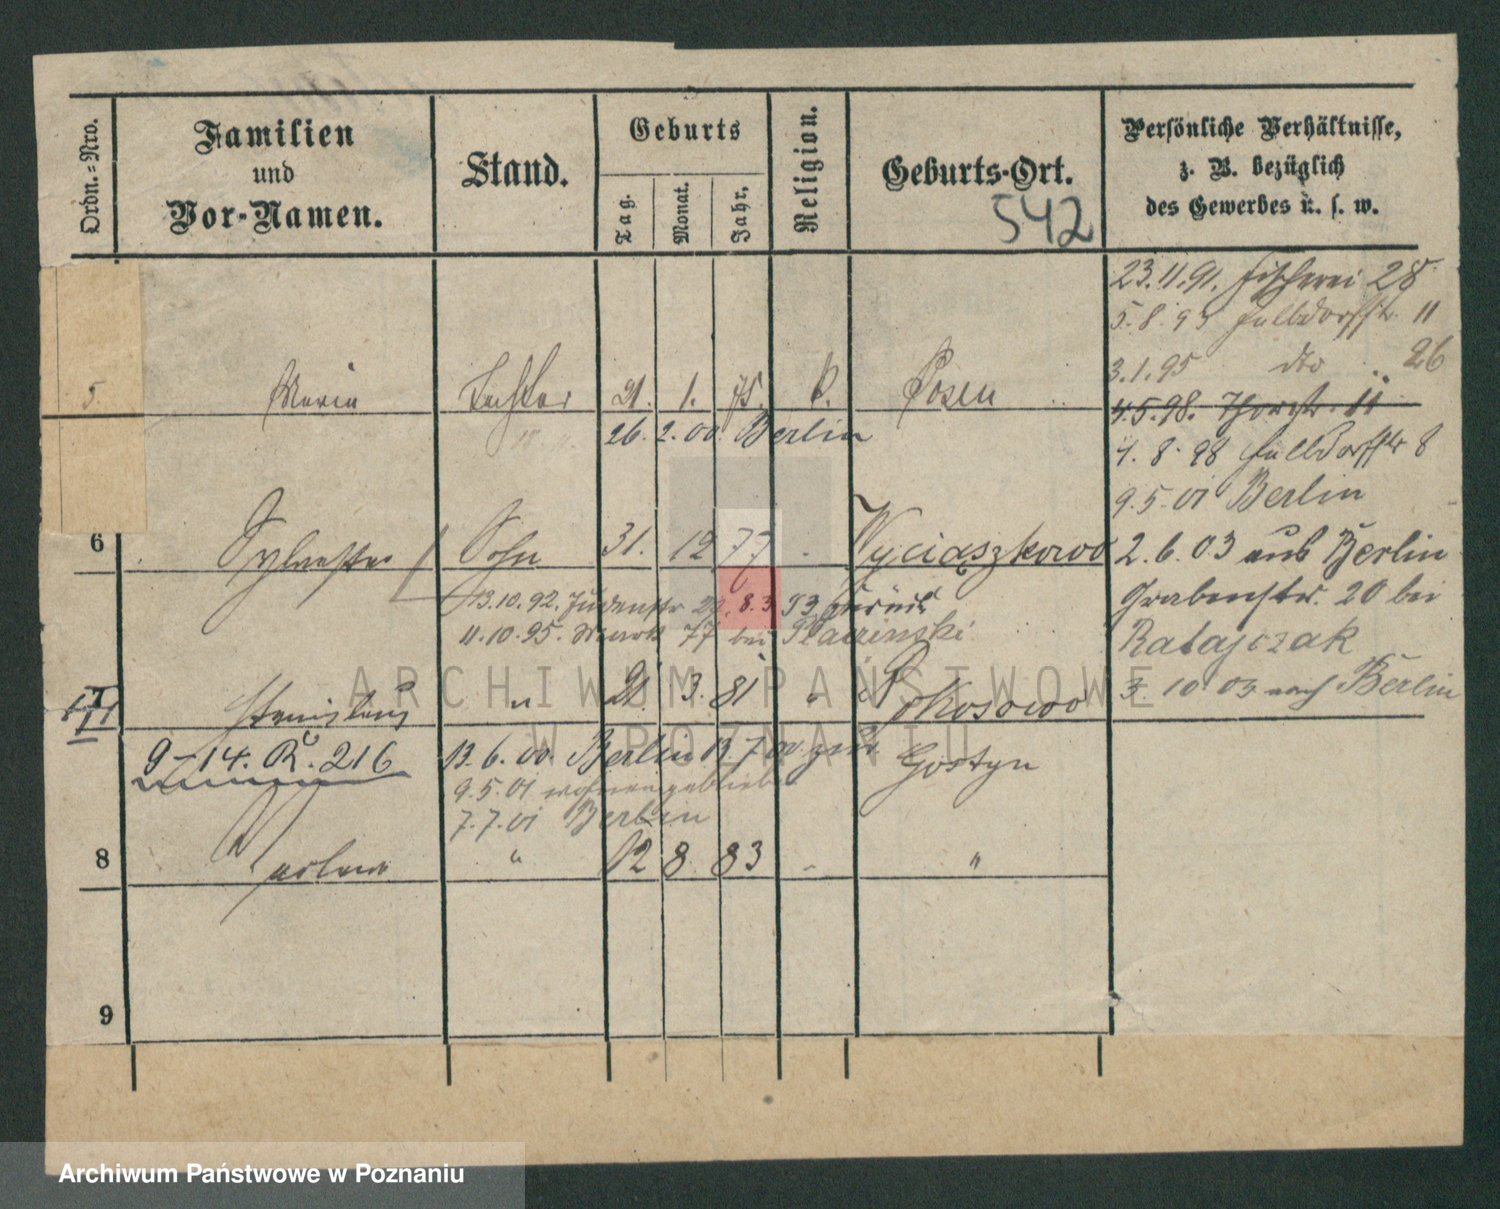 Ordn.-Nro.
Familien
und
Vor-Namen.
Stand.
Geburts
Tag.
Monat.
Jahr.
Religion.
Geburts-Ort.
542
Persönliche Verhältnisse,
z. B. bezüglich
des Gewerbes u. s. w.
23.11.91. Fischerei 28
5.8.93 Halldorfstr. 11
3.1.95 dto 26
5. Maria Tochter 21. 1. 75. k. Posen
4.5.98. Thorstr. 11
26. 2. 00. Berlin
4. 8. 98 Halldorfstr 8
9.5.01 Berlin
6 Sylvester Sohn 31. 12 77 Wyciązkowo
2.6.03 aus Berlin
13.10.92. Judenstr 8.3 93 zurück
Grabenstr. 20 bei
11.10.95. Markt 77 bei
Ratajczak
3. 10 03 nach Berlin
Stanislaus " 21. 3. 81 " Pokosowo
9-14. R. 216
13.6.00. Berlin 13 7 00 zur.
Gostyn
9.5.01
7.7.01 Berlin
8 " 12 8 83 "
9
ARCHIWUM PAŃSTWOWE
W POZNANIU
Archiwum Państwowe w Poznaniu